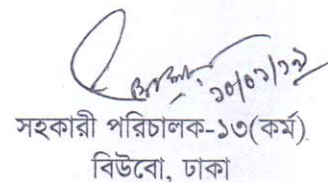 ১০/০১/১৯
সহকারী পরিচালক-১৩(কর্ম)
বিউবো, ঢাকা